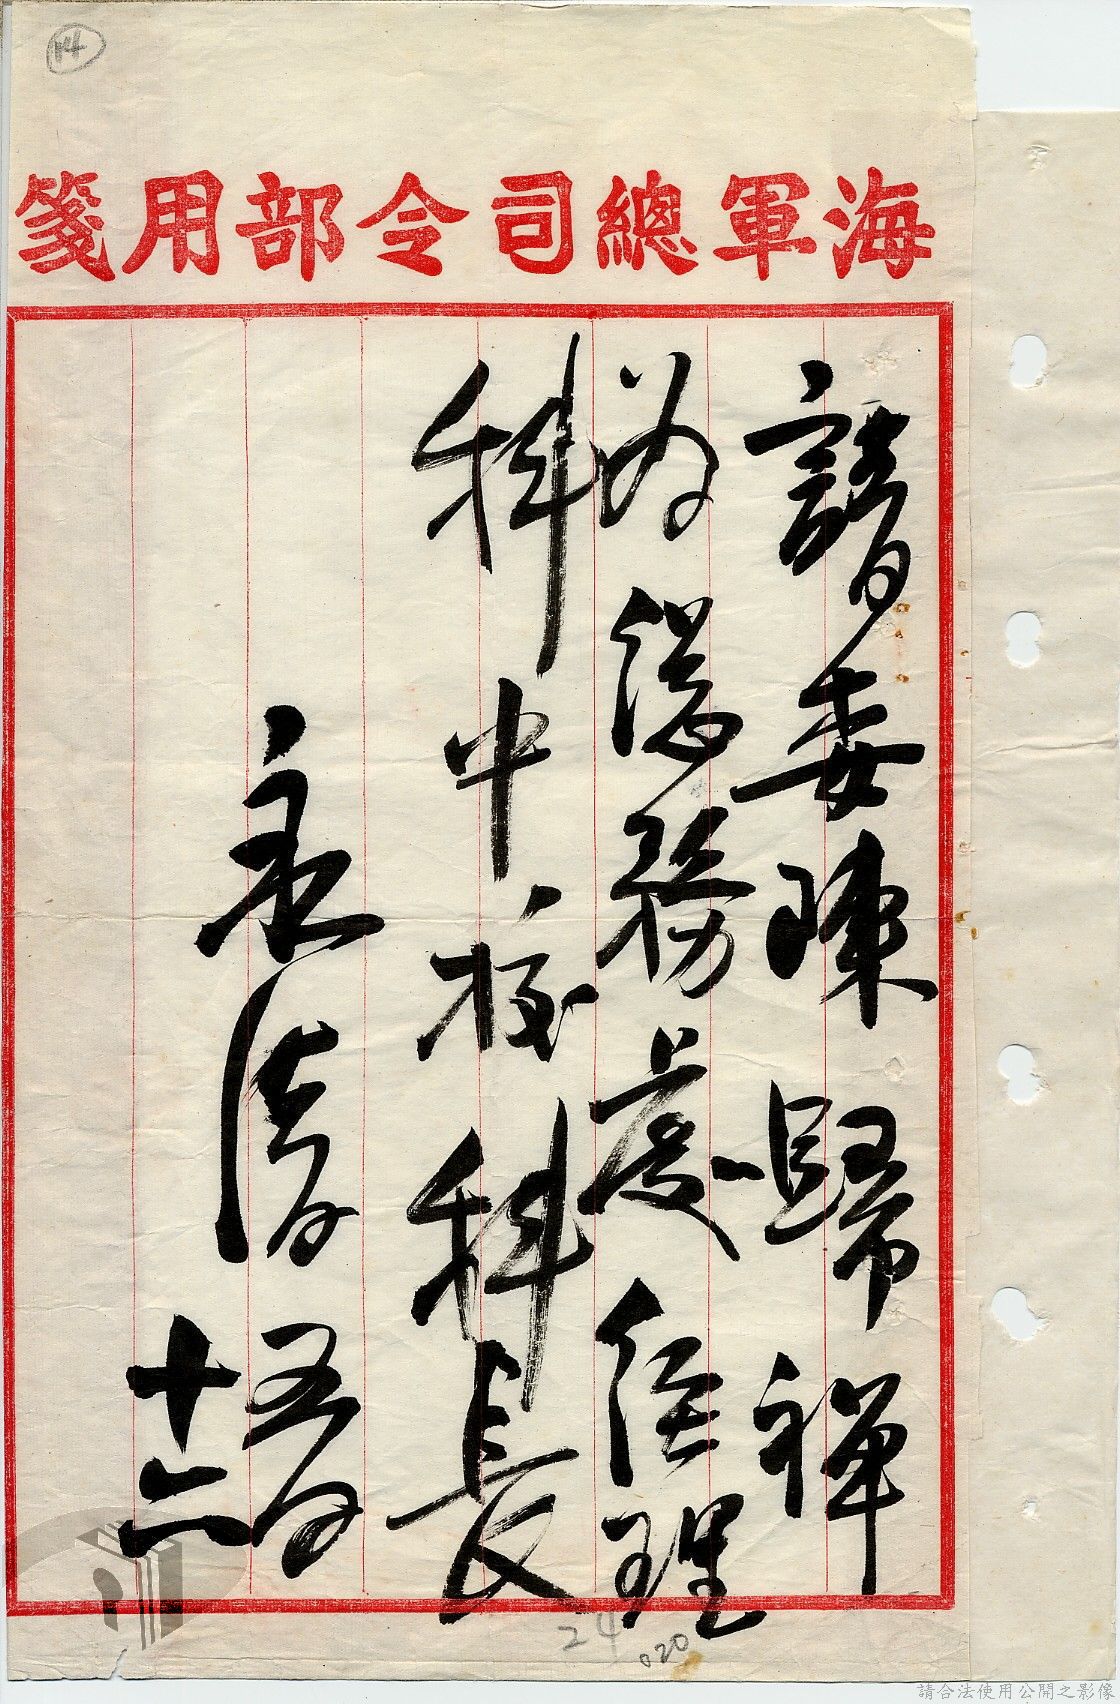 14
海軍總司令部用箋
請委陳歸禪
為總務處經理
科中校科長
永清 五月
十六
24
020
請合法使用公開之影像